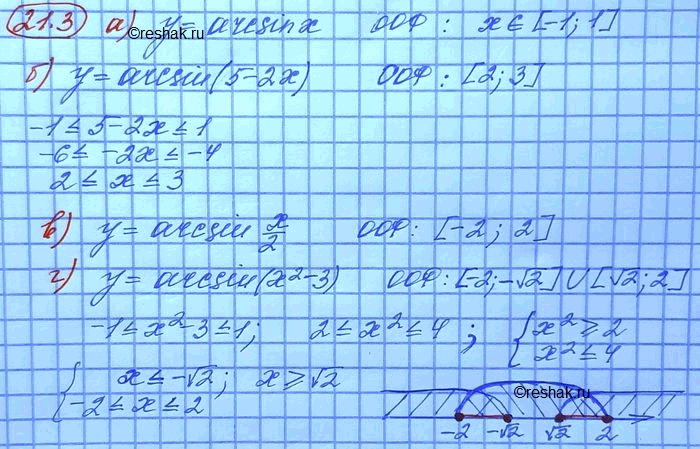 21.3 а) y = arcsin x ООФ : x ∈ [-1; 1]
©reshak.ru
б) y = arcsin(5-2x) ООФ : [2; 3]
-1 ≤ 5-2x ≤ 1
-6 ≤ -2x ≤ -4
2 ≤ x ≤ 3
в) y = arcsin x/2 ООФ : [-2; 2]
г) y = arcsin(x²-3) ООФ : [-2; -√2] ∪ [√2; 2]
-1 ≤ x²-3 ≤ 1; 2 ≤ x² ≤ 4 ; { x² ≥ 2
x² ≤ 4
{ x ≤ -√2; x ≥ √2
-2 ≤ x ≤ 2
©reshak.ru
-2 -√2 √2 2